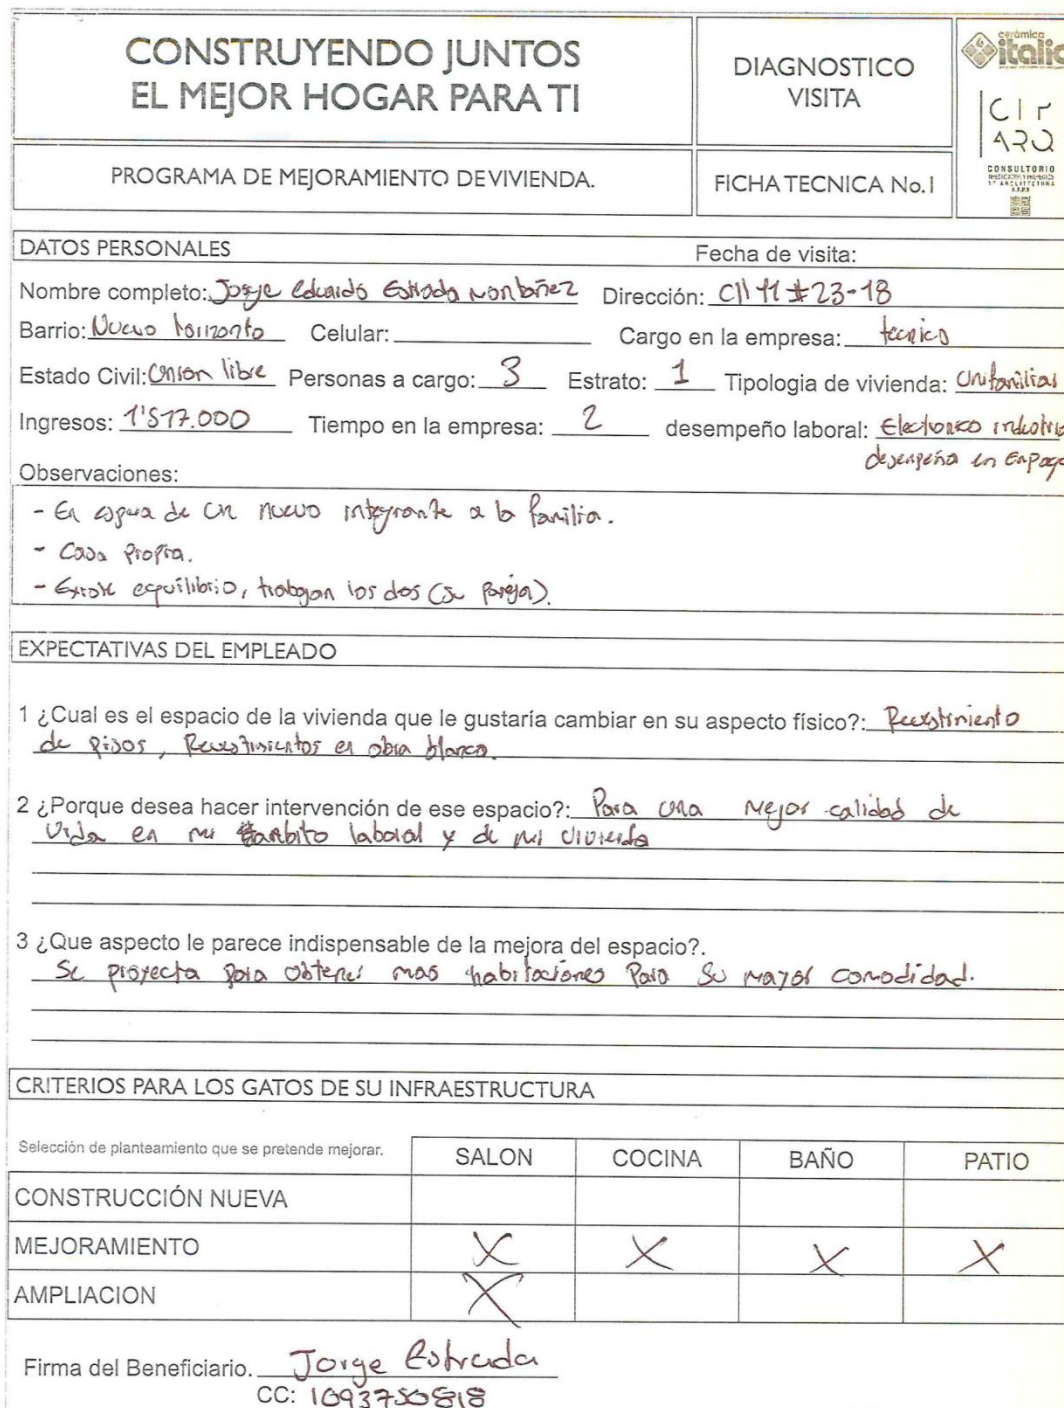 CONSTRUYENDO JUNTOS
EL MEJOR HOGAR PARA TI
DIAGNOSTICO
VISITA
cerámica
italia
CIP
ARQ
CONSULTORIO
PROGRAMA DE MEJORAMIENTO DE VIVIENDA.
FICHA TECNICA No.1
DATOS PERSONALES Fecha de visita:
Nombre completo: Jorge Eduardo Estrada Montañez Dirección: Cll 11 #23-18
Barrio: Nuevo horizonte Celular: Cargo en la empresa: tecnico
Estado Civil: Union libre Personas a cargo: 3 Estrato: 1 Tipologia de vivienda: Unifamiliar
Ingresos: 1'517.000 Tiempo en la empresa: 2 desempeño laboral: Electronico industria
desempeña en Empaq
Observaciones:
- En espera de un nuevo integrante a la familia.
- Casa propia.
- Existe equilibrio, trabajan los dos (su pareja).
EXPECTATIVAS DEL EMPLEADO
1 ¿Cual es el espacio de la vivienda que le gustaría cambiar en su aspecto físico?: Revestimiento
de pisos, Revestimientos en obra blanca.
2 ¿Porque desea hacer intervención de ese espacio?: Para una mejor calidad de
vida en mi ambito laboral y de mi vivienda
3 ¿Que aspecto le parece indispensable de la mejora del espacio?.
Se proyecta para obtener mas habitaciones para su mayor comodidad.
CRITERIOS PARA LOS GATOS DE SU INFRAESTRUCTURA
Selección de planteamiento que se pretende mejorar. SALON COCINA BAÑO PATIO
CONSTRUCCIÓN NUEVA
MEJORAMIENTO X X X X
AMPLIACION X
Firma del Beneficiario. Jorge Estrada
CC: 1093750818